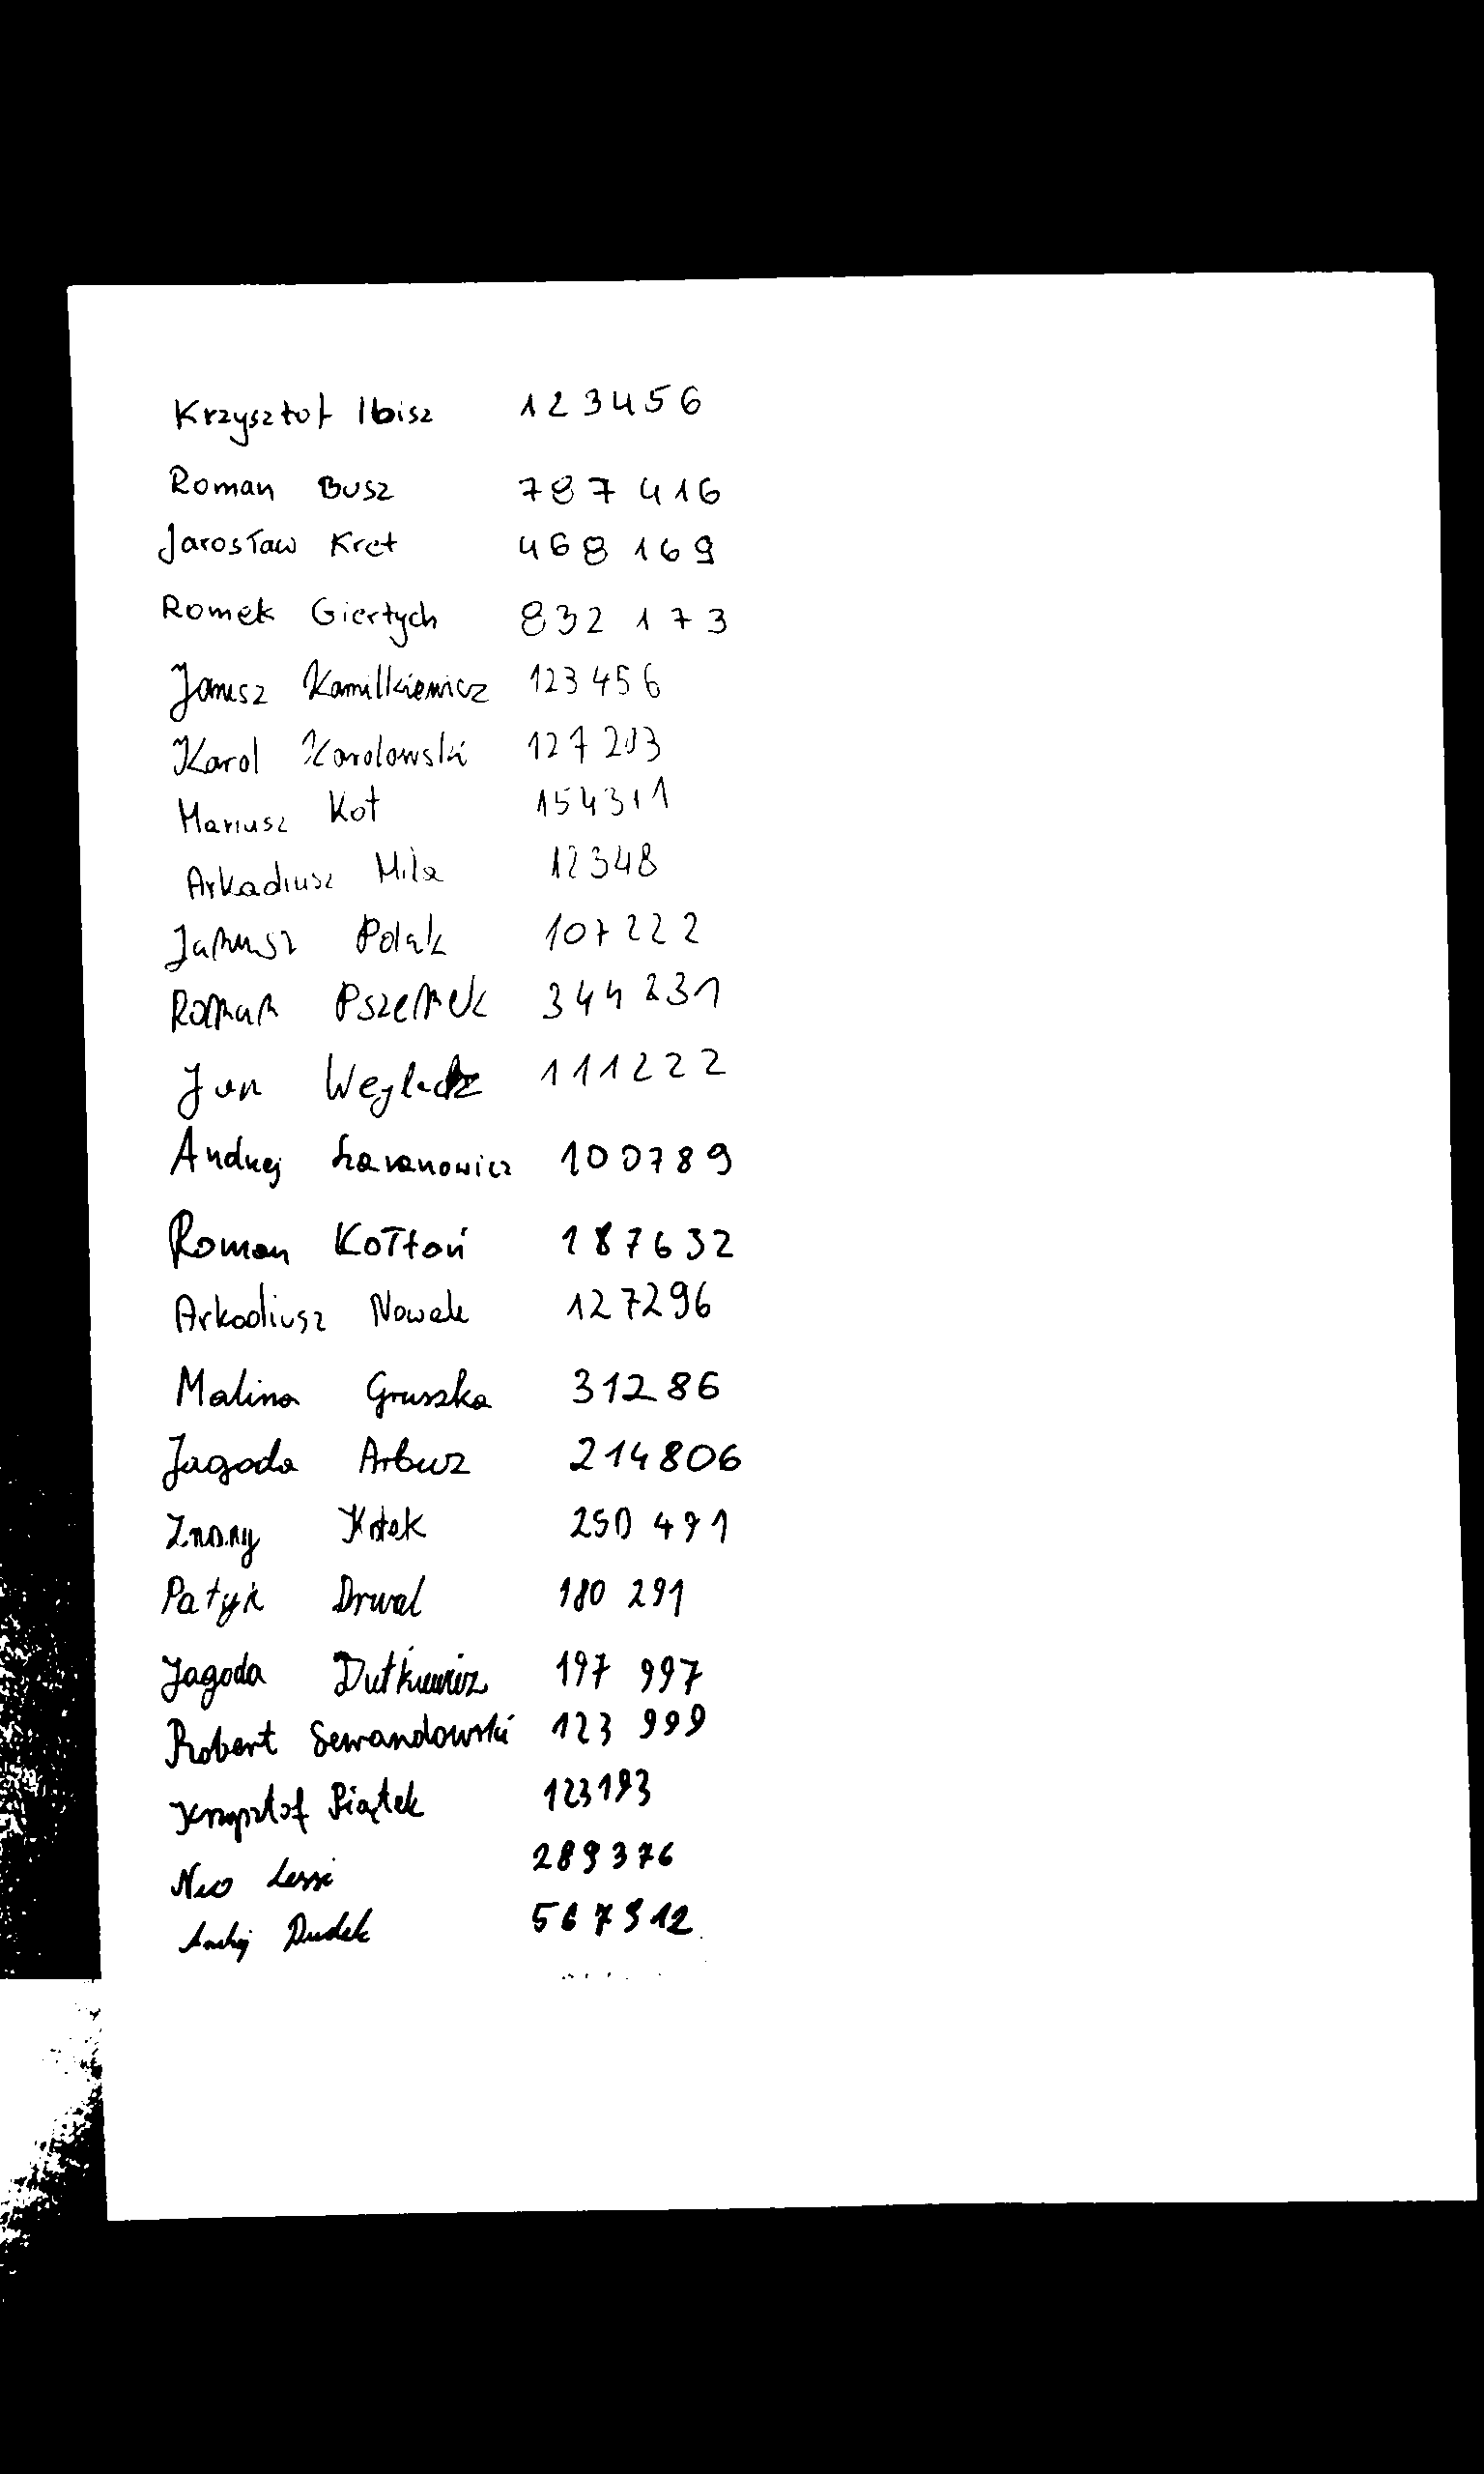 Krzysztof Ibisz 123456
Roman Busz 787 416
Jarosław Kret 468 169
Romek Giertych 832 173
Janusz Kamilkiewicz 123456
Karol Karolowski 127 213
Mariusz Kot 154311
Arkadiusz Mila 12348
Janusz Polak 107222
Roman Pszemek 344231
Jan 111222
Andrzej 100789
Roman Kołtoń 187632
Arkadiusz Nowak 127296
Malina Gruszka 31286
Jagoda Arbuz 214806
Znany Kotek 250 491
Patyk Drwal 180 291
Jagoda Dutkiewicz 197 997
Robert Sewandowski 123 999
Krzysztof Piątek 123193
Neo Lessi 289376
Andrzej Dudek 567912